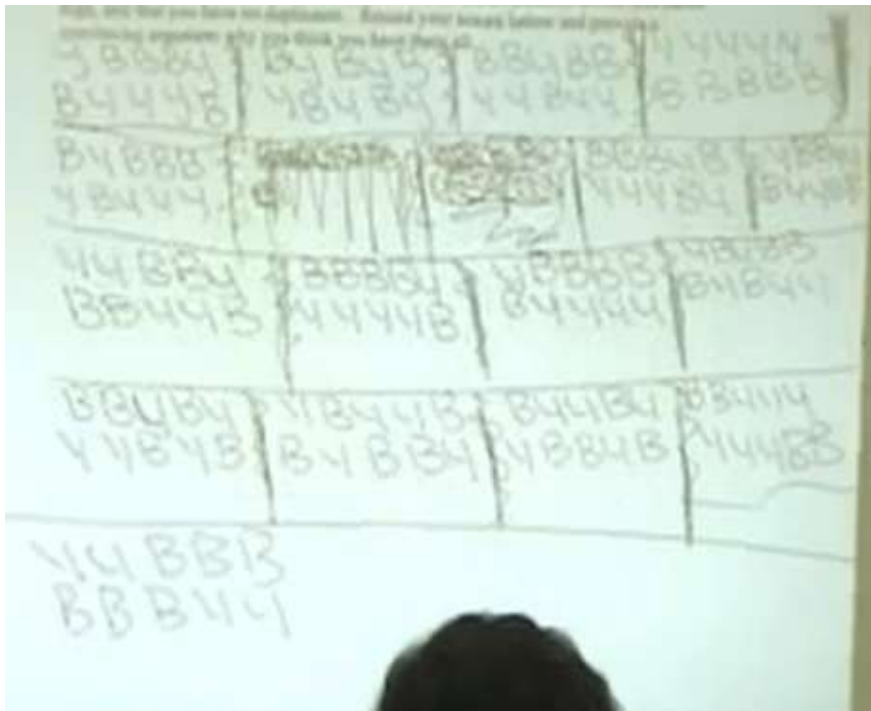 and that you have no duplicates. Record your towers below and provide a
convincing argument why you think you have them all.
YBBBY BYBYB BBYBB YYYYY
BYYYB YBYBY YYBYY BBBBB
BYBBB BBBYB
YBYYY YYYBY
YYBBY BBBBY YBBBB YBYBB
BBYYB YYYYB BYYYY BYBYY
BBYBY YBYYB BYYBY BBYYY
YYBYB BYBBY YBBYB YYYBB
YYBBB
BBBYY